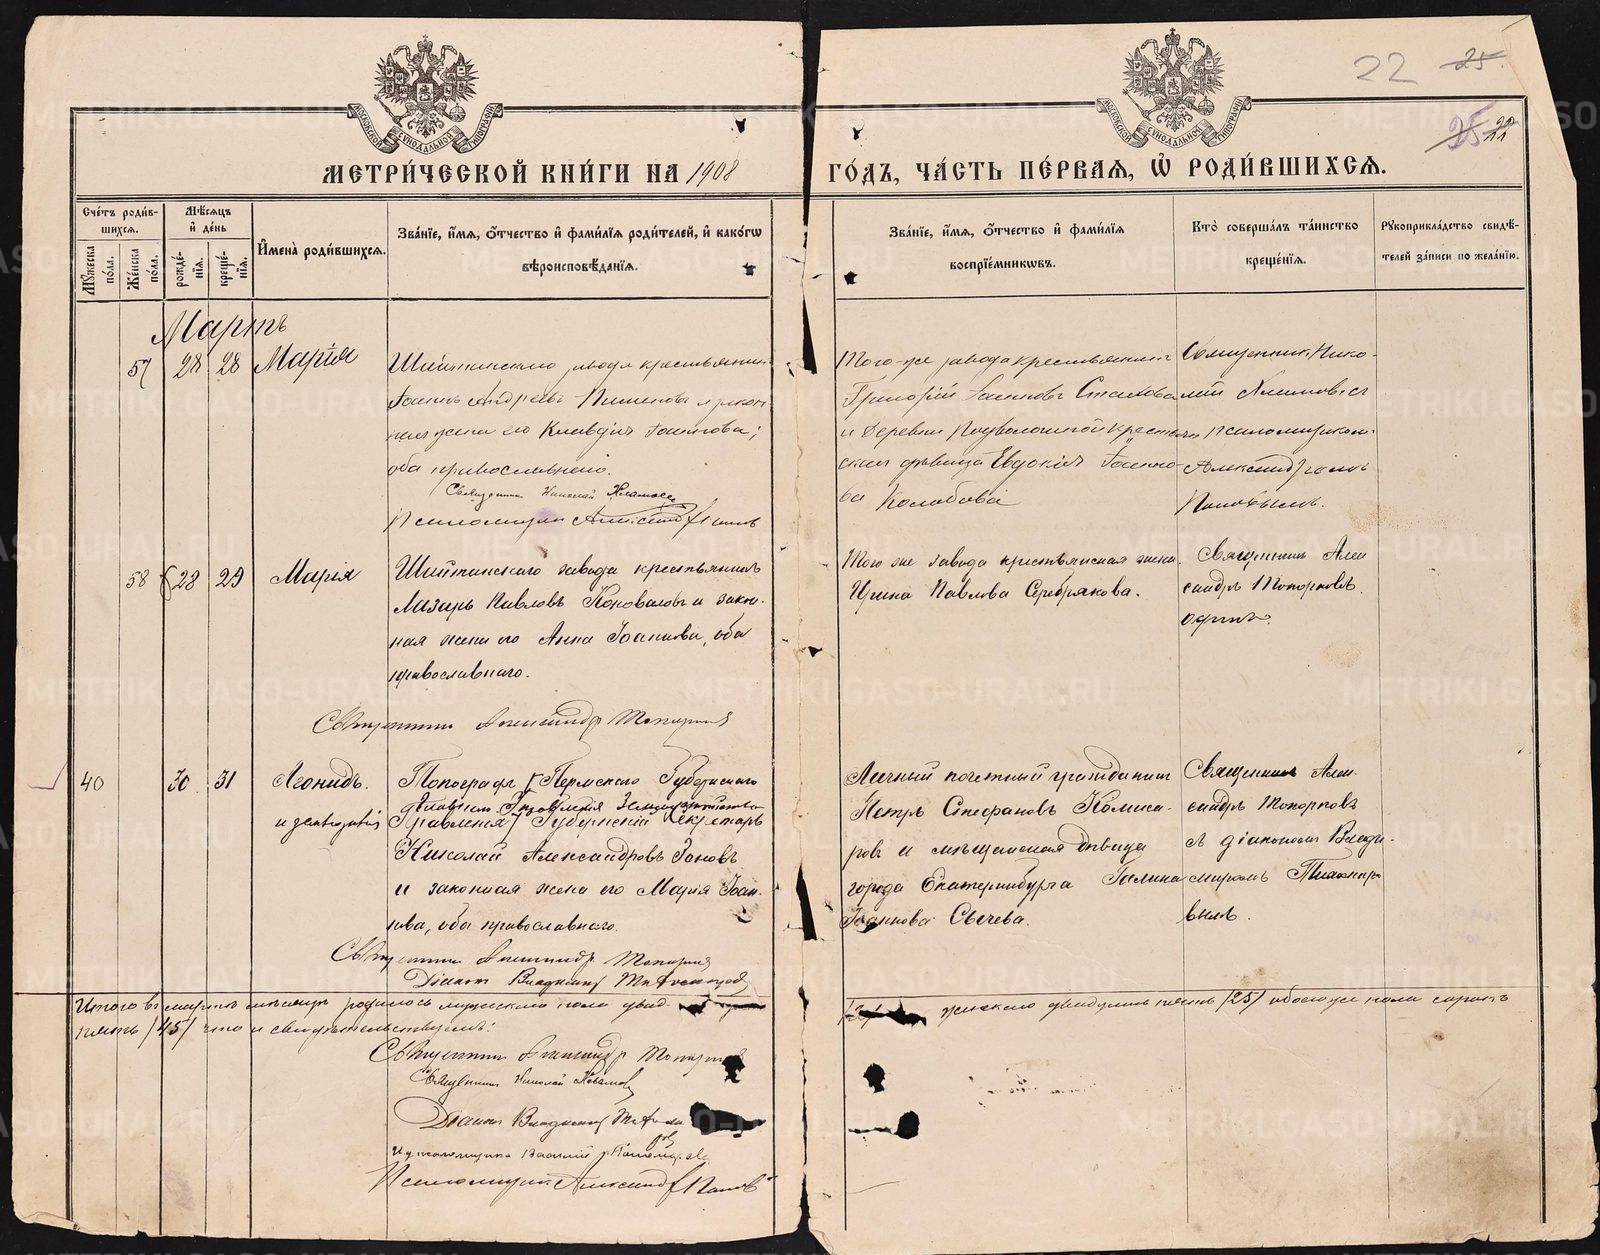 22 25.
25 22
МЕТРИ́ЧЕСКОЙ КНИ́ГИ НА 1908 ГО́ДЪ, ЧА́СТЬ ПЕ́РВАѦ, Ѡ҆ РОДИ́ВШИХСѦ.
Счетъ роди́вшихся.
Мужеска по́ла.
Же́нска по́ла.
Мѣсяцъ и҆ де́нь
рожде́нїя.
креще́нїя.
И҆мена̀ роди́вшихся.
Зва́нїе, и҆́мя, ѻ҆́тчество и҆ фами́лїя роди́телей, и҆ како́гѡ
вѣроисповѣ́данїя.
Зва́нїе, и҆́мя, ѻ҆́тчество и҆ фами́лїя
воспрїе́мникѡвъ.
Кто̀ соверша́лъ та́инство
креще́нїя.
Рукоприкла́дство свидѣ́-
телей за́писи по жела́нїю.
Мартъ
57 28 28 Марія
Шайтанскаго завода крестьянинъ
Іоаннъ Андреевъ Пименовъ и закон
ная жена его Клавдія Іоаннова;
оба православнаго.
Священникъ Николай
Псаломщикъ Александръ Поповъ
Того-же завода крестьянинъ
Григорій Іоанновъ
и деревни крестьян
ская дѣвица Евдокія Іоанно-
ва Колобова
Священникъ Нико-
лай съ
псаломщикомъ
Александромъ
Поповымъ.
58 28 29 Марія
Шайтанскаго завода крестьянинъ
Лазарь Павловъ Коноваловъ и закон-
ная жена его Анна Іоаннова, оба
православнаго.
Священникъ Александръ Топорковъ
Того же завода крестьянская жена
Ирина Павлова Серебрякова.
Священникъ Алек
сандръ Топорковъ.
одинъ.
40 30 31 Леонидъ.
Топографъ Пермскаго Губернскаго
Правленія Губернскій Секретарь
Николай Александровъ
и законная жена его Марія Іоан-
нова, оба православнаго.
Священникъ Александръ Топорковъ
Діаконъ Владимиръ
Личный почетный гражданинъ
Петръ Стефановъ Комиса-
ровъ и мѣщанская дѣвица
города Екатеринбурга Галина
Іоаннова Сычева.
Священникъ Алек-
сандръ Топорковъ
съ діакономъ Влади-
миромъ
вымъ.
Итого въ мартѣ мѣсяцѣ родилось мужескаго пола двад
женскаго двадцать пять /25/ обоего же пола сорокъ
пять /45/ что и свидѣтельствуемъ:
Священникъ Александръ Топорковъ
Священникъ Николай
Діаконъ Владимиръ
Псаломщикъ Александръ Поповъ
METRIKI.GASO-URAL.RU